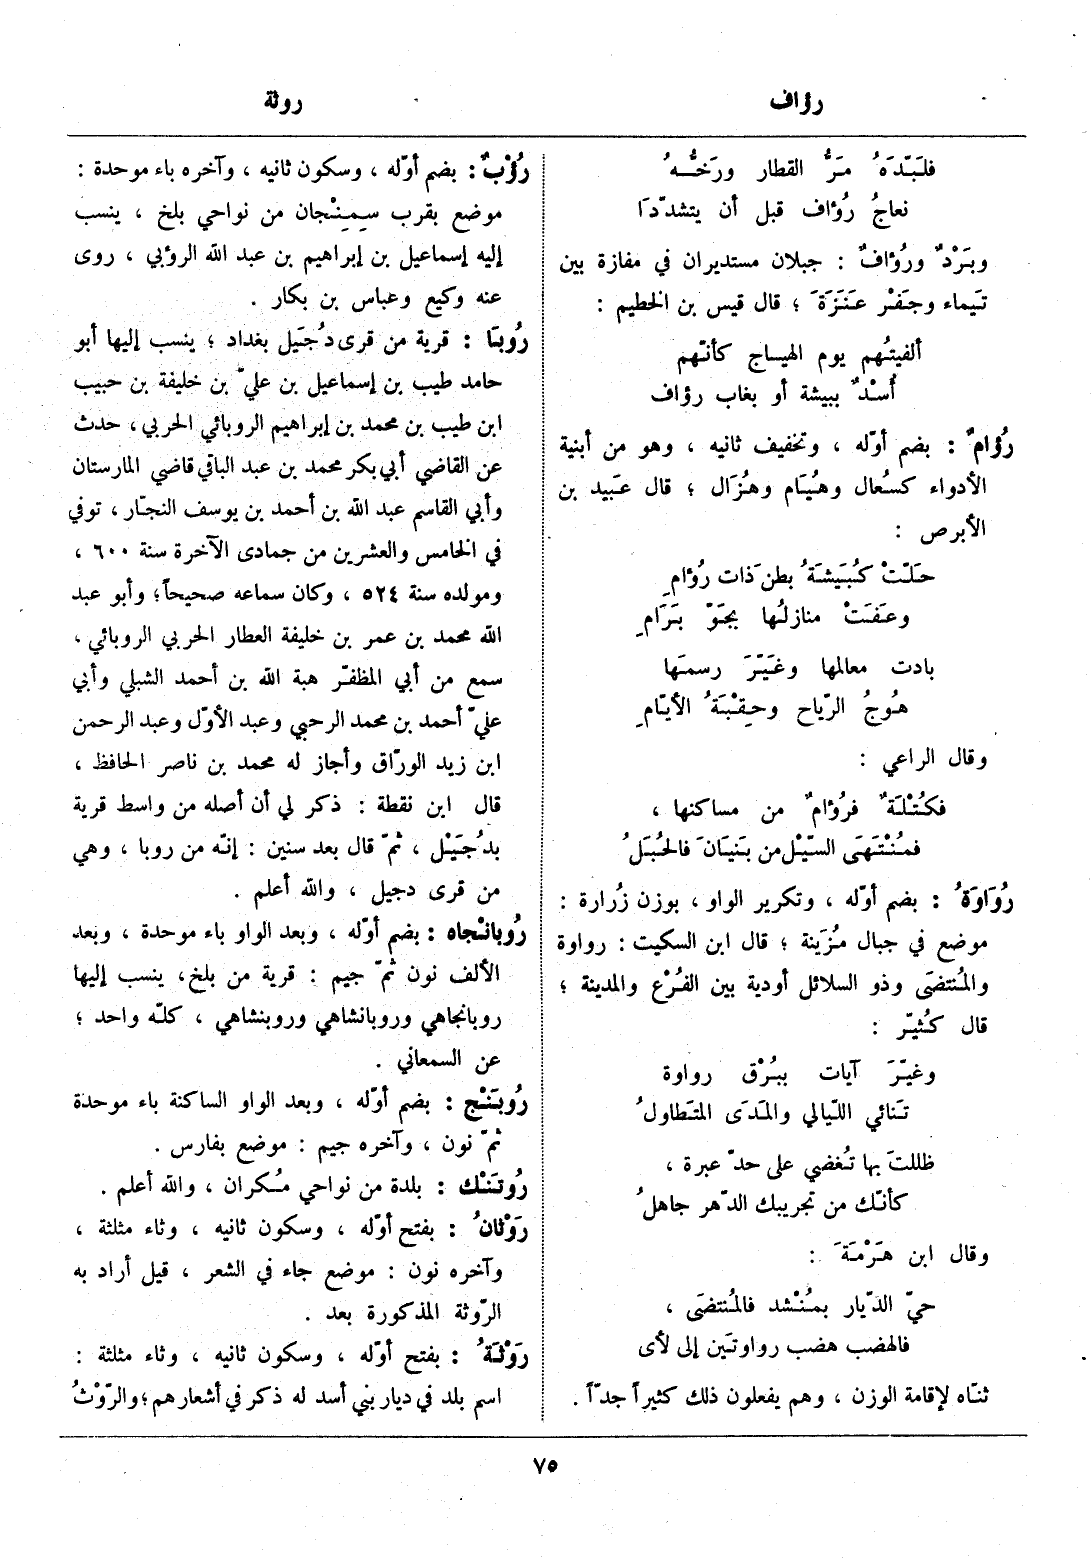 رؤاف
روثة
فلَبّدَهُ مَرُّ القطار ورَخُّهُ
نعاجُ رُؤاف قبل أن يتشدّدَا
وبَرْدٌ ورُؤافٌ : جبلان مستديران في مفازة بين
تَيماء وجَفْر عَنَزَةَ ؛ قال قيس بن الخطيم :
ألفيتُهم يوم الهياج كأنّهم
أُسْدٌ ببيشة أو بغاب رؤاف
رُؤامٌ : بضم أوّله ، وتخفيف ثانيه ، وهو من أبنية
الأدواء كسُعال وهُيَام وهُزَال ؛ قال عَبيد بن
الأبرص :
حَلّتْ كُبَيشَةُ بطنَ ذات رُؤامِ
وعَفَتْ منازلُها بجَوّ بَرَامِ
بادت معالمها وغَيّرَ رسمَها
هُوجُ الرّياح وحِقْبَةُ الأيّامِ
وقال الراعي :
فكُتْلَةٌ فرُؤامٌ من مساكنها ،
فمُنْتَهَى السّيْل من بَنيَانَ فالحُبَلُ
رُوَاوَةُ : بضم أوّله ، وتكرير الواو ، بوزن زُرارة :
موضع في جبال مُزَينة ؛ قال ابن السكيت : رواوة
والمُنتضَى وذو السلائل أودية بين الفُرْع والمدينة ؛
قال كُثيّر :
وغيّرَ آيات ببُرْق رواوة
تَنائي اللّيالي والمَدَى المتَطاولُ
ظللتَ بها تُغضي على حدّ عبرة ،
كأنّك من تجريبك الدّهر جاهلُ
وقال ابن هَرْمَةَ :
حيّ الدّيار بمُنْشد فالمُنتضَى ،
فالهضب هضب رواوتَين إلى لأى
ثنّاه لإقامة الوزن ، وهم يفعلون ذلك كثيراً جدّاً .
رُؤْبٌ : بضم أوّله ، وسكون ثانيه ، وآخره باء موحدة :
موضع بقرب سِمِنْجان من نواحي بلخ ، ينسب
إليه إسماعيل بن إبراهيم بن عبد الله الرؤبي ، روى
عنه وكيع وعباس بن بكار .
رُوبَا : قرية من قرى دُجَيل بغداد ؛ ينسب إليها أبو
حامد طيب بن إسماعيل بن عليّ بن خليفة بن حبيب
ابن طيب بن محمد بن إبراهيم الروبائي الحربي ، حدث
عن القاضي أبي بكر محمد بن عبد الباقي قاضي المارستان
وأبي القاسم عبد الله بن أحمد بن يوسف النجّار ، توفي
في الخامس والعشرين من جمادى الآخرة سنة ٦٠٠ ،
ومولده سنة ٥٢٤ ، وكان سماعه صحيحاً ؛ وأبو عبد
الله محمد بن عمر بن خليفة العطار الحربي الروبائي ،
سمع من أبي المظفّر هبة الله بن أحمد الشبلي وأبي
عليّ أحمد بن محمد الرحبي وعبد الأوّل وعبد الرحمن
ابن زيد الورّاق وأجاز له محمد بن ناصر الحافظ ،
قال ابن نقطة : ذكر لي أن أصله من واسط قرية
بدُجَيْل ، ثمّ قال بعد سنين : إنّه من روبا ، وهي
من قرى دجيل ، والله أعلم .
رُوبانْجاه : بضم أوّله ، وبعد الواو باء موحدة ، وبعد
الألف نون ثمّ جيم : قرية من بلخ ، ينسب إليها
روبانجاهي وروبانشاهي وروبنشاهي ، كلّه واحد ؛
عن السمعاني .
رُوبَنْج : بضم أوّله ، وبعد الواو الساكنة باء موحدة
ثمّ نون ، وآخره جيم : موضع بفارس .
رُوتَنْك : بلدة من نواحي مُكران ، والله أعلم .
رَوْثانُ : بفتح أوّله ، وسكون ثانيه ، وثاء مثلثة ،
وآخره نون : موضع جاء في الشعر ، قيل أراد به
الرّوثة المذكورة بعد .
رَوْثَةُ : بفتح أوّله ، وسكون ثانيه ، وثاء مثلثة :
اسم بلد في ديار بني أسد له ذكر في أشعارهم ؛ والرّوْثُ
٧٥